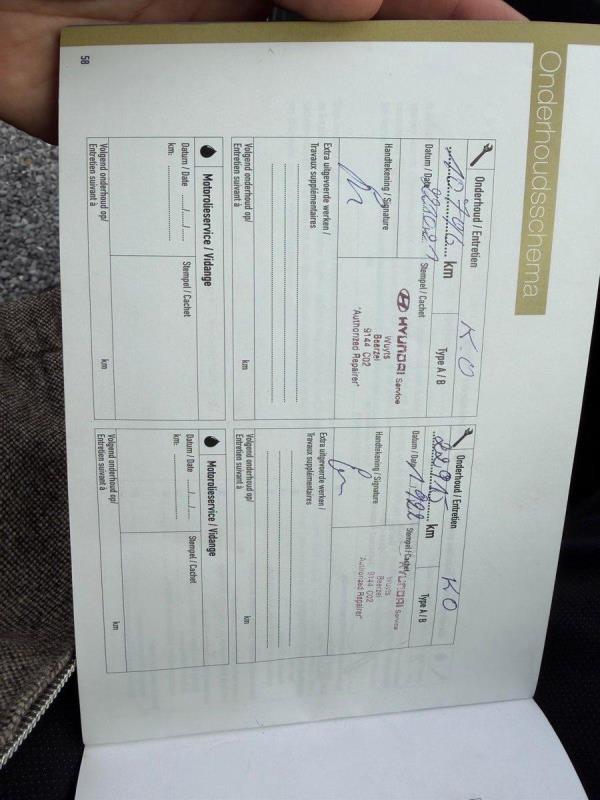 Onderhoudsschema
Onderhoud / Entretien
K O
km
Type A / B
Datum / Date
Stempel / Cachet
HYUNDAI Service
Wuyts
Beerzel
9144 C02
"Authorized Repairer"
Handtekening / Signature
Extra uitgevoerde werken /
Travaux supplémentaires
Volgend onderhoud op/
Entretien suivant à
km
Motorolieservice / Vidange
Datum / Date ...../...../.....
Stempel / Cachet
km: ..................
Volgend onderhoud op/
Entretien suivant à
km
Onderhoud / Entretien
K O
km
Type A / B
Datum / Date
Stempel / Cachet
HYUNDAI Service
Wuyts
Beerzel
9144 C02
"Authorized Repairer"
Handtekening / Signature
Extra uitgevoerde werken /
Travaux supplémentaires
Volgend onderhoud op/
Entretien suivant à
km
Motorolieservice / Vidange
Datum / Date ...../...../.....
Stempel / Cachet
km: ..................
Volgend onderhoud op/
Entretien suivant à
km
58